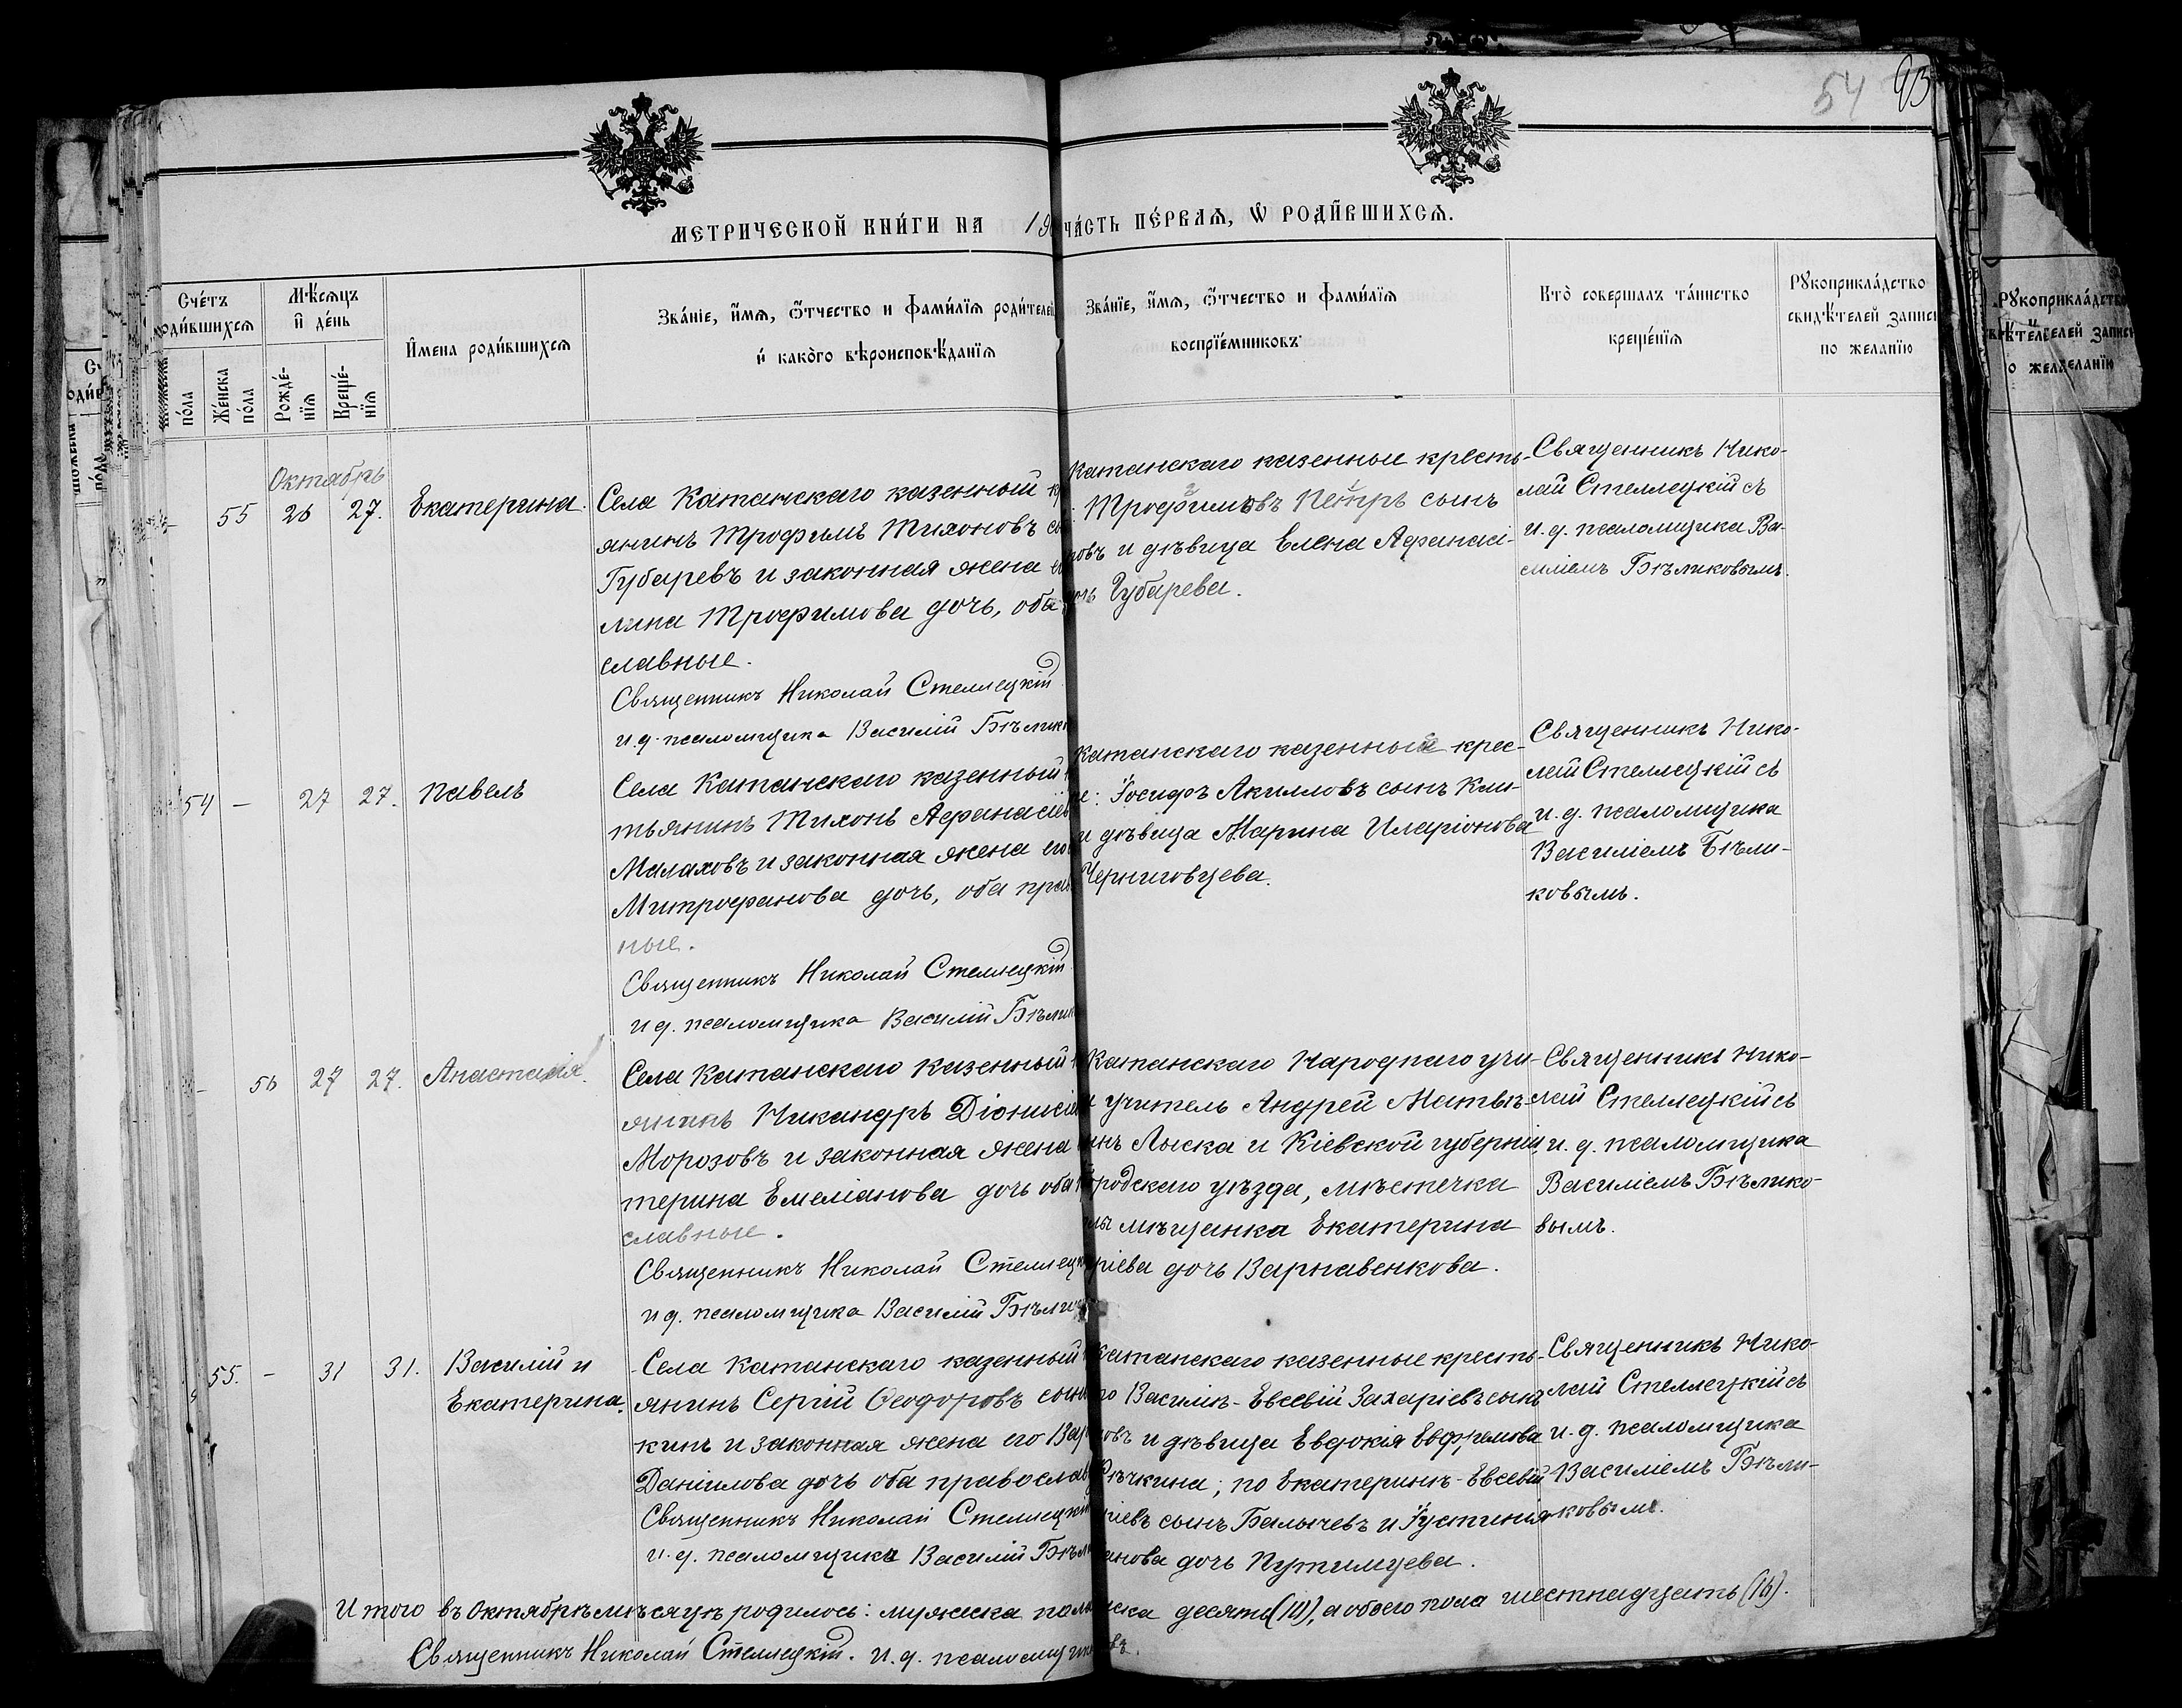 54 93
МЕТРИЧЕСКОЙ КНИ́ГИ НА 19 ЧА́СТЬ ПЕ́РВАѦ, Ѡ РОДИ́ВШИХСѦ.
Сче́тъ родившихсѧ
Мѣ́сѧцъ и де́нь
И҆мена роди́вшихсѧ
Зва́ніе, и҆́мѧ, ѻ҆́тчество и фами́лїѧ роди́телей
и како́го вѣроисповѣ́данїѧ
Зва́нїе, и҆́мѧ, ѻ҆́тчество и фами́лїѧ
воспрїе́мниковъ
Кто̀ соверша́лъ та́инство
креще́нїѧ
Рꙋкоприкла́дство
свидѣ́телей записи
по жела́нїю
по́ла
Же́нска по́ла
Рожде́нїѧ
Креще́нїѧ
Октябрь
– 55 26 27. Екатерина.
Села Каманскаго казенный
янинъ Трофимъ Тихоновъ
Губаревъ и законная жена
лина Трофимова дочь, оба
славные.
Священникъ Николай Стеллецкій
и.д. псаломщика Василій Бѣлик
Каманскаго казенные кресть-
Трофимовъ Петръ сынъ
ровъ и дѣвица Елена Афанасі-
дочь Губарева.
Священникъ Нико-
лай Стеллецкій съ
и.д. псаломщика Ва-
силіемъ Бѣликовымъ.
54 – 27 27. Павелъ
Села Каманскаго казенный
тьянинъ Тихонъ Афанасіев
Малаховъ и законная жена его
Митрофанова дочь, оба прав
ные.
Священникъ Николай Стеллецкій
и д. псаломщика Василій Бѣлик
Каманскаго казенный крес-
не: Іосифъ Акилловъ сынъ Кли-
и дѣвица Марина Иларіонова
Черниговцева.
Священникъ Нико-
лай Стеллецкій съ
и. д. псаломщика
Василіемъ Бѣли-
ковымъ.
– 56 27 27. Анастасія.
Села Каманскаго казенный
янинъ Никандръ Діонисіев
Морозовъ и законная жена
терина Емеліанова дочь оба
славные.
Священникъ Николай Стеллецк
и д. псаломщика Василій Бѣлик
Каманскаго Народнаго учи-
учитель Андрей Матвѣ-
сынъ Лыска и Кіевской губерніи,
городскаго уѣзда, мѣстечка
мѣщанка Екатерина
ріева дочь Варнавенкова.
Священникъ Нико-
лай Стеллецкій съ
и. д. псаломщика
Василіемъ Бѣлико-
вымъ.
55. – 31 31. Василій и
Екатерина.
Села Каманскаго казенный
янинъ Сергій Ѳеодоровъ сынъ
кинъ и законная жена его Вар
Даніилова дочь оба православ
Священникъ Николай Стеллецкій
и. д. псаломщика Василій Бѣли
Каманскаго казенные кресть-
по Василіѣ - Евсевій Захаріевъ сынъ
овъ и дѣвица Евдокія Евфремова
Рѣчкина; по Екатеринѣ - Евсевій
ріевъ сынъ Балычевъ и Іустинія
анова дочь Путимцева.
Священникъ Нико-
лай Стеллецкій съ
и. д. псаломщика
Василіемъ Бѣли-
ковымъ.
Итого въ Октябрѣ мѣсяцѣ родилось: мужеска пола женска десять (10), а обоего пола шестнадцать (16).
Священникъ Николай Стеллецкій. и. д. псаломщика